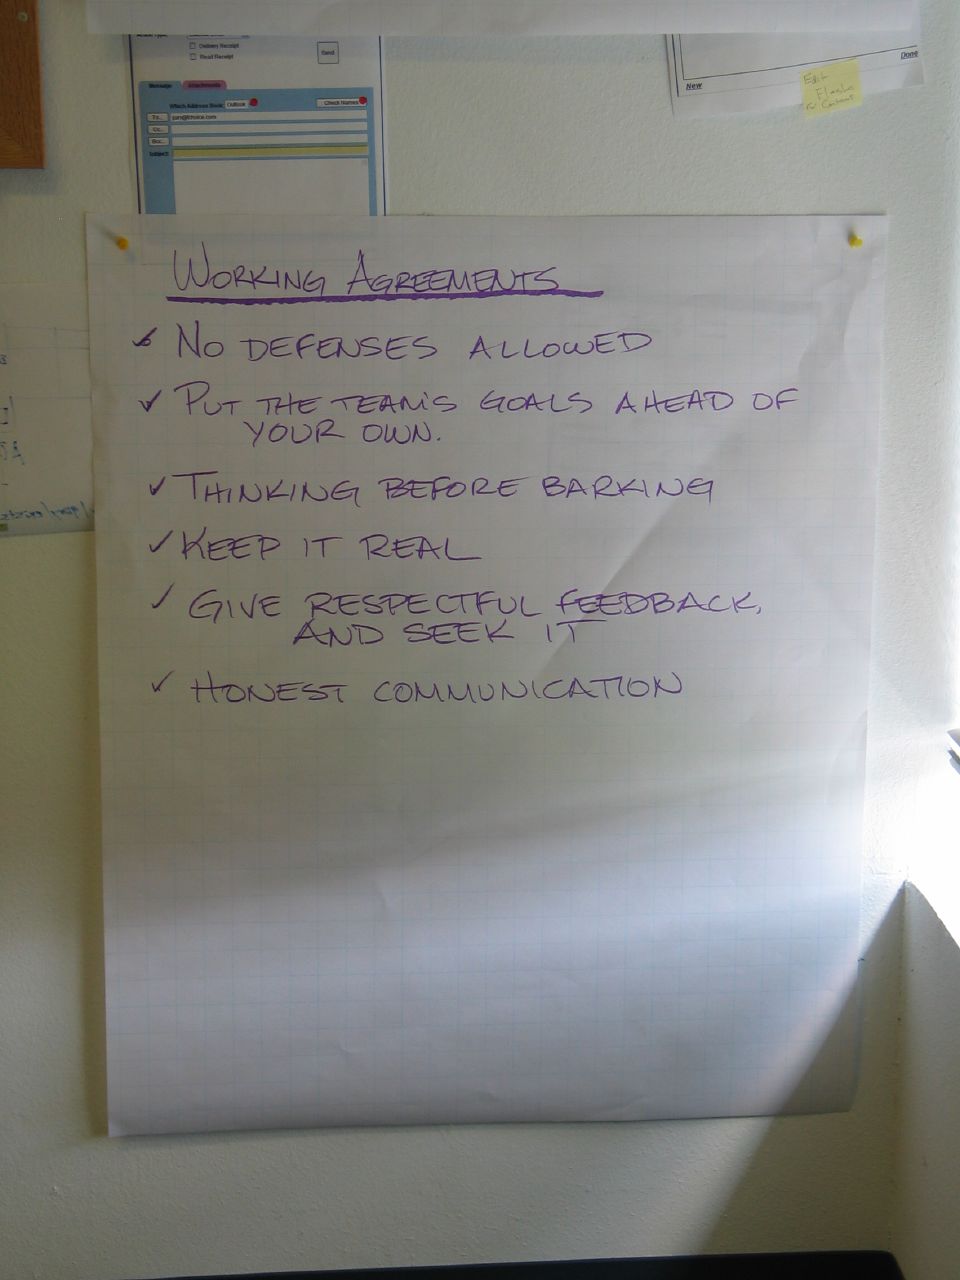 Delivery Receipt
Read Receipt
Send
Message
Attachments
Which Address Book:
Outlook
Check Names
To...
Cc...
Bcc...
Subject:
New
Done
Edit
WORKING AGREEMENTS
✓ NO DEFENSES ALLOWED
✓ PUT THE TEAM'S GOALS AHEAD OF
YOUR OWN.
✓ THINKING BEFORE BARKING
✓ KEEP IT REAL
✓ GIVE RESPECTFUL FEEDBACK,
AND SEEK IT
✓ HONEST COMMUNICATION